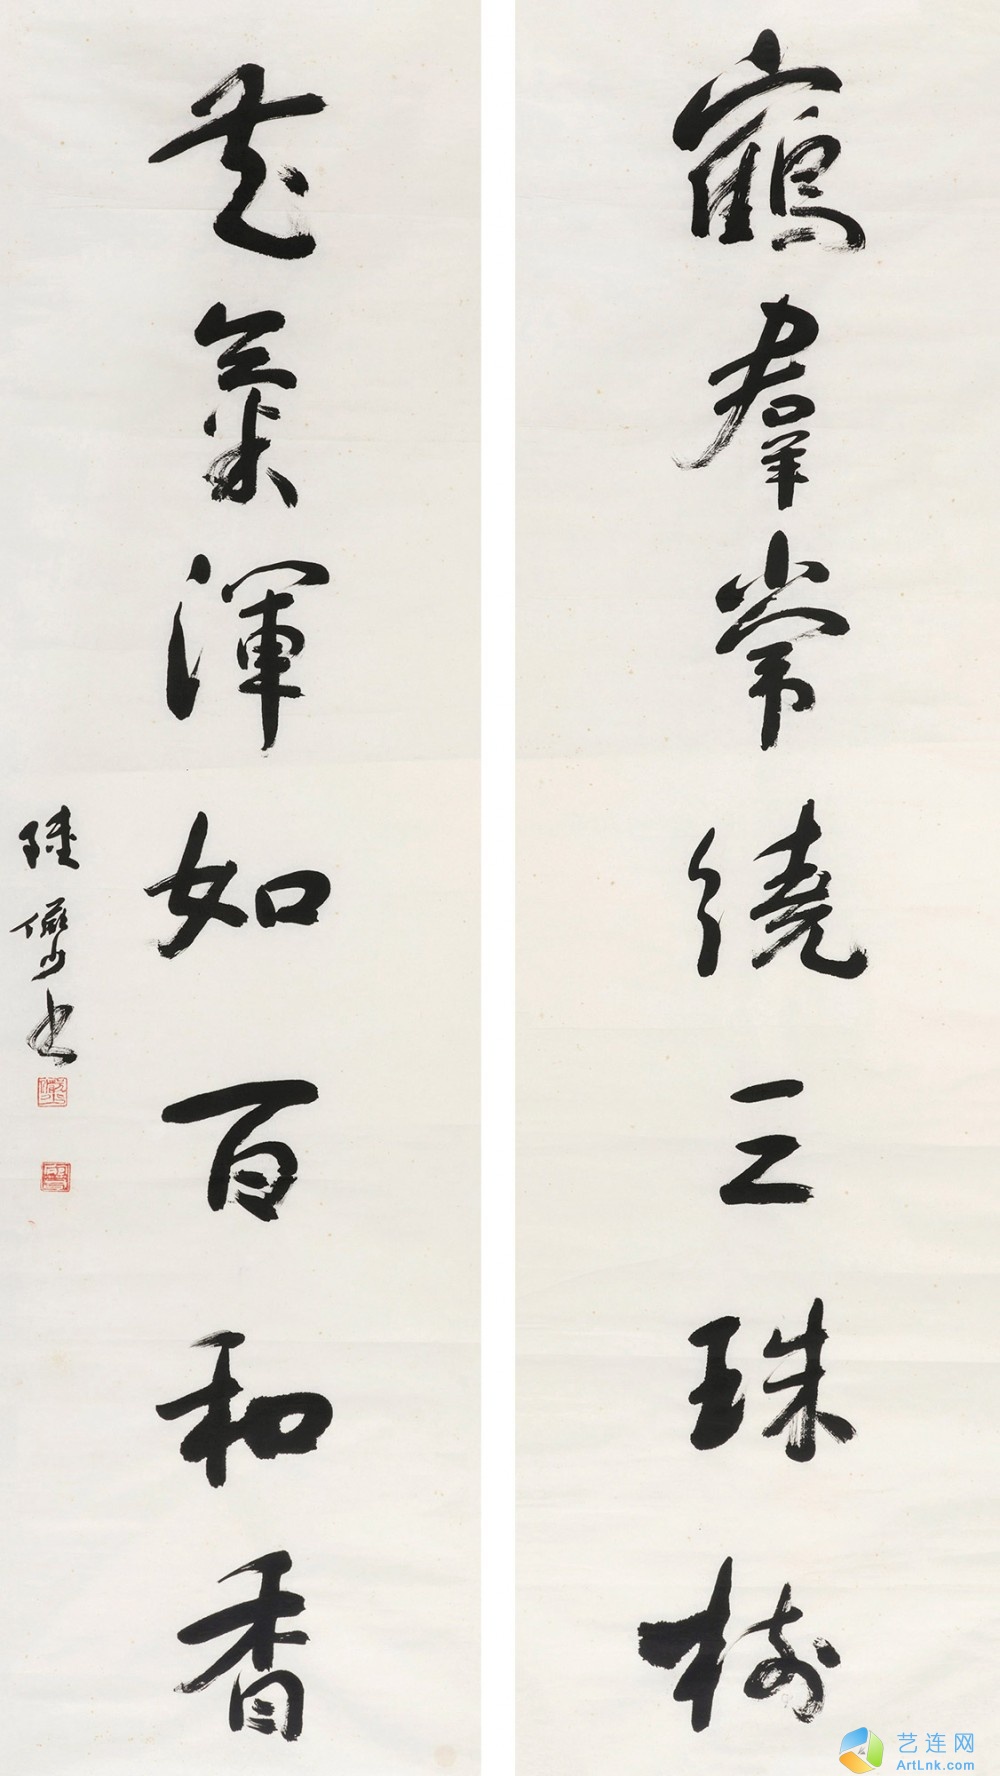 鶴群常繞三珠樹
花氣渾如百和香
陸儼少書
艺连网
ArtLnk.com